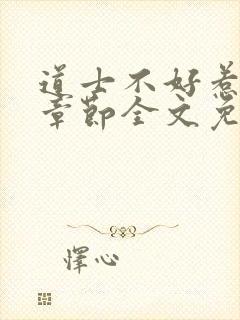 道士不好惹
章节全文免
怿心